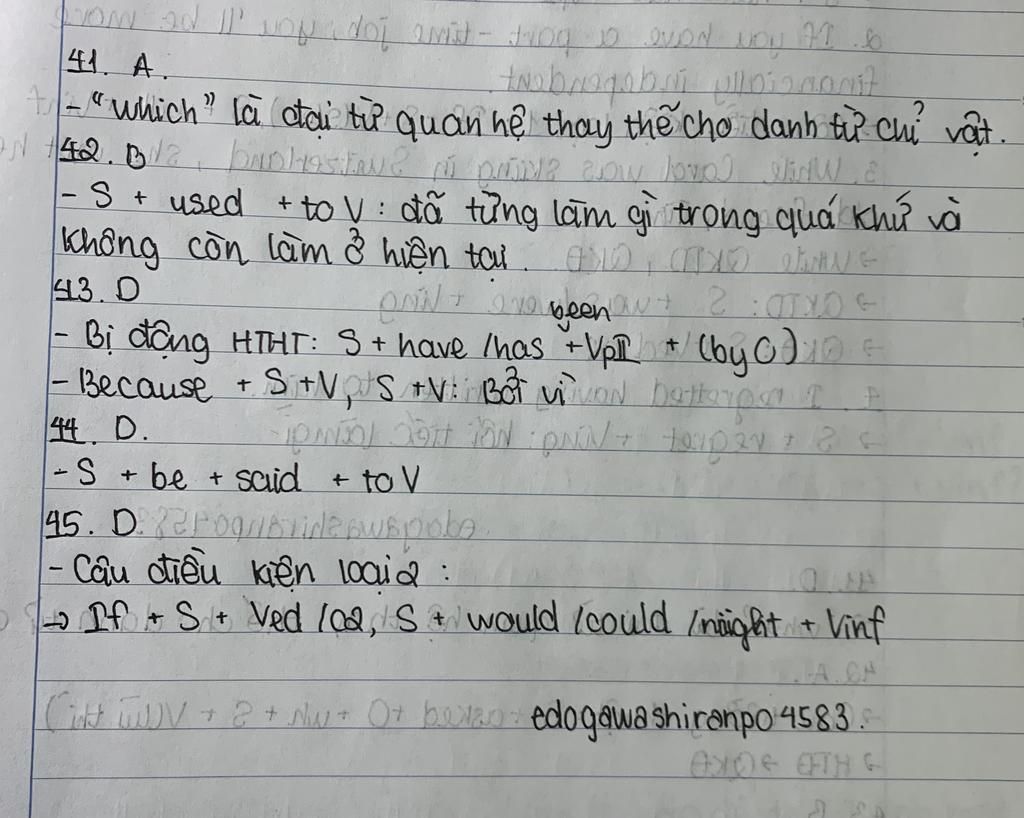 41. A.
- "which" là đại từ quan hệ thay thế cho danh từ chỉ vật.
42. B
- S + used + to V : đã từng làm gì trong quá khứ và
không còn làm ở hiện tại.
43. D
been
- Bị động HTHT: S + have /has + VpII + (by O)
- Because + S +V, S +V: Bởi vì
44. D.
- S + be + said + to V
45. D.
- Câu điều kiện loại 2 :
→ If + S + Ved /C2, S + would /could /might + Vinf
edogawashiranpo4583.